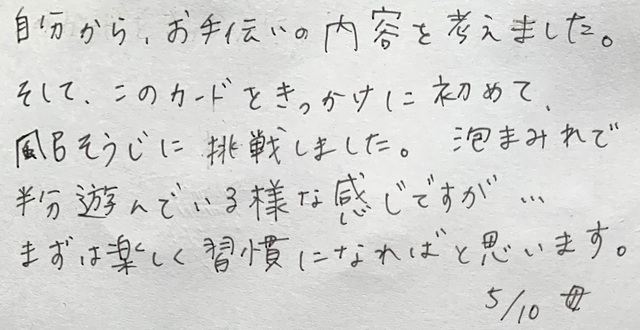 自分から、お手伝いの内容を考えました。
そして、このカードをきっかけに初めて、
風呂そうじに挑戦しました。泡まみれで
半分遊んでいる様な感じですが…
まずは楽しく習慣になればと思います。
5/10 母